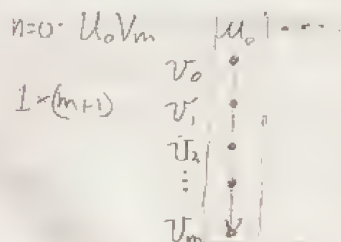 n=0. U₀Vₘ |μ₀| ....
v₀
1×(m+1) v₁
v₂
⋮
vₘ